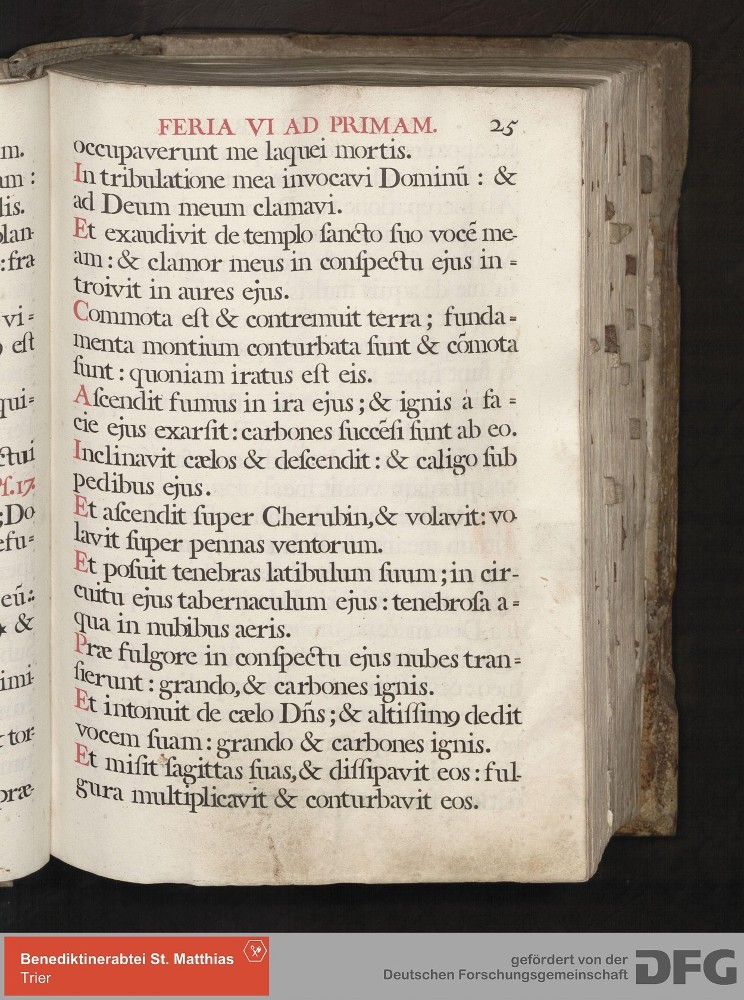 FERIA VI AD PRIMAM. 25
occupaverunt me laquei mortis.
In tribulatione mea invocavi Dominū : &
ad Deum meum clamavi.
Et exaudivit de templo ſancto ſuo vocē me-
am : & clamor meus in conſpectu ejus in =
troivit in aures ejus.
Commota eſt & contremuit terra ; funda =
menta montium conturbata ſunt & cōmota
ſunt : quoniam iratus eſt eis.
Aſcendit fumus in ira ejus ; & ignis à fa =
cie ejus exarſit : carbones ſuccēſi ſunt ab eo.
Inclinavit cælos & deſcendit : & caligo ſub
pedibus ejus.
Et aſcendit ſuper Cherubin, & volavit : vo-
lavit ſuper pennas ventorum.
Et poſuit tenebras latibulum ſuum ; in cir-
cuitu ejus tabernaculum ejus : tenebroſa a =
qua in nubibus aeris.
Præ fulgore in conſpectu ejus nubes tran =
ſierunt : grando, & carbones ignis.
Et intonuit de cælo Dn̄s ; & altiſſimꝯ dedit
vocem ſuam : grando & carbones ignis.
Et miſit ſagittas ſuas, & diſſipavit eos : ful-
gura multiplicavit & conturbavit eos.
m.
am :
lis.
: fra
vi =
eſt
qui =
ctui
Pſ. 17.
; Do
efu =
eū :
* &
imi
tor-
præ-
Benediktinerabtei St. Matthias
Trier
gefördert von der
Deutschen Forschungsgemeinschaft
DFG